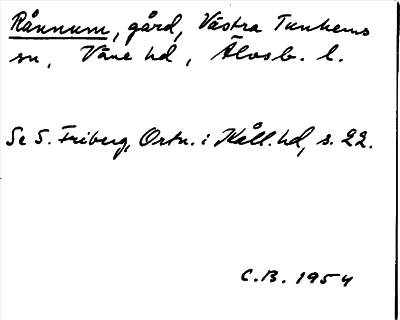 Rånnum, gård, Västra Tunhems
sn, Väne hd, Älvsb. l.
Se S. Friberg, Ortn. i Kåll. hd, s. 22.
C.B. 1954